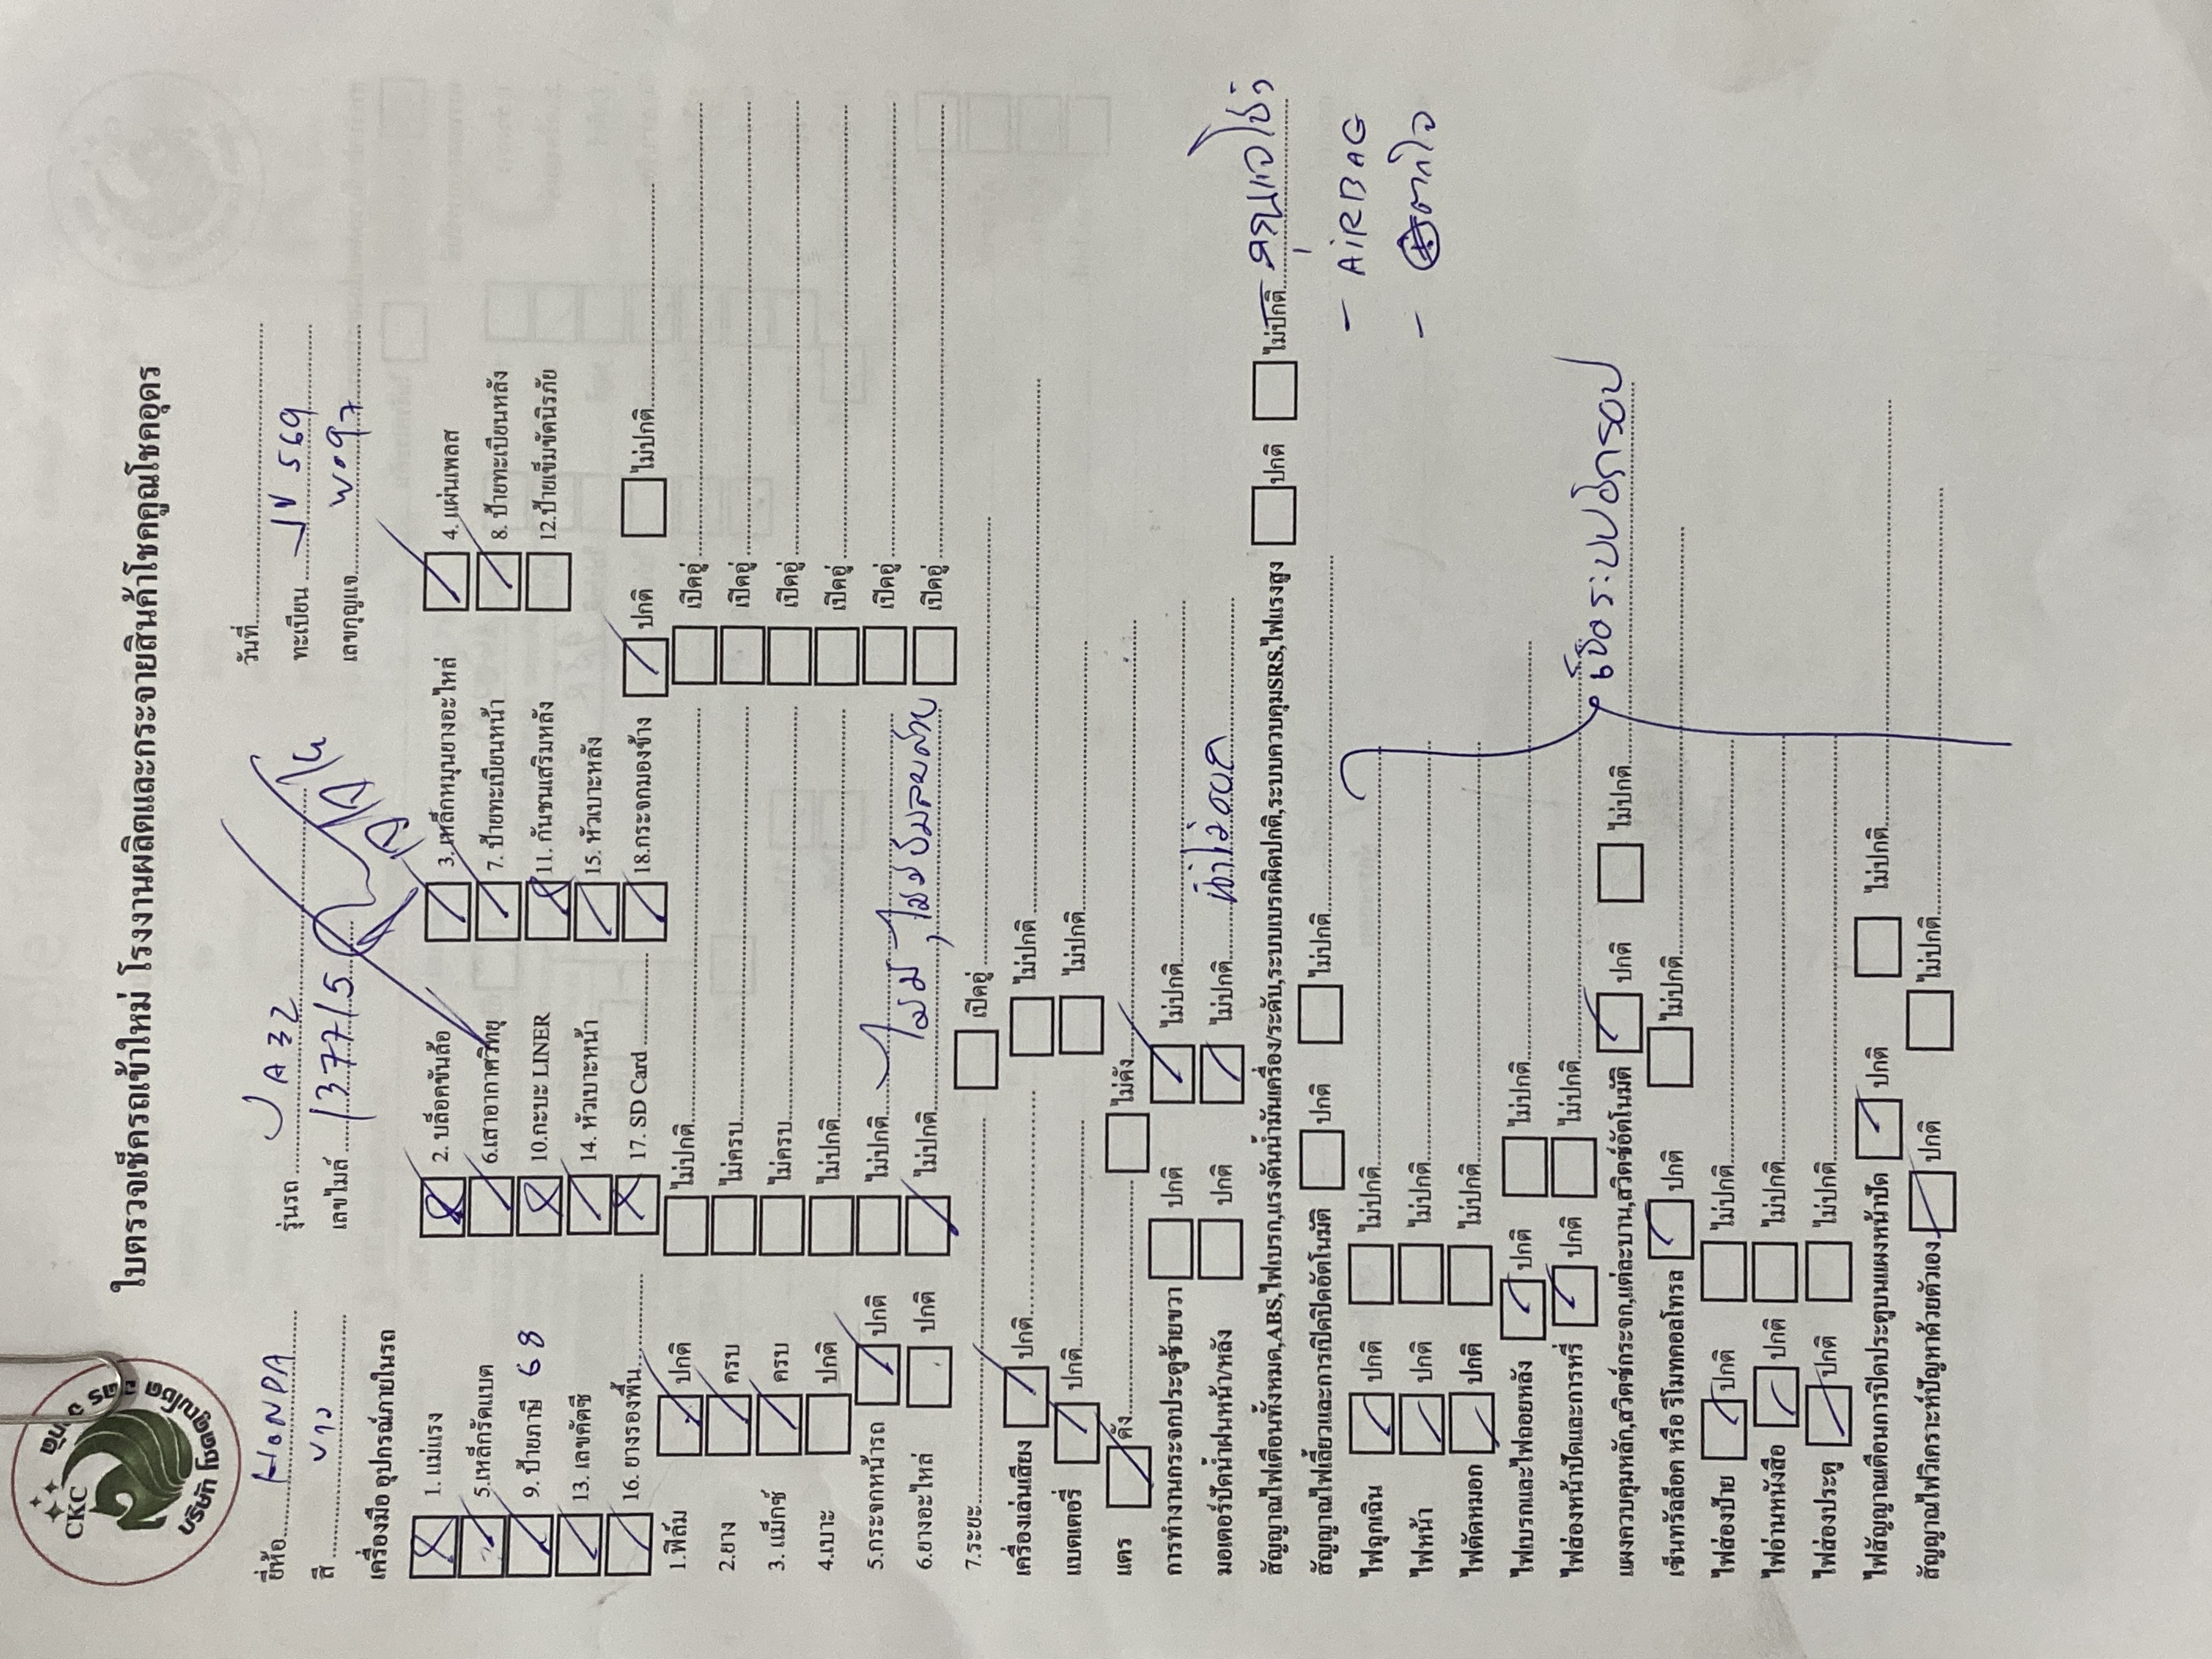 CKC
บริษัท โชคคูณโชค
ใบตรวจเช็ครถเข้าใหม่ โรงงานผลิตและกระจายสินค้าโชคคูณโชคอุดร
ยี่ห้อ HONDA รุ่นรถ วันที่
สี ขาว เลขไมล์ 137715 ทะเบียน 569
เลขกุญแจ W097
เครื่องมือ อุปกรณ์ภายในรถ
1. แม่แรง 2. บล็อคขันล้อ 3. เหล็กหมุนยางอะไหล่ 4. แผ่นเพลส
5.เหล็กรัดแบต 6.เสาอากาศวิทยุ 7. ป้ายทะเบียนหน้า 8. ป้ายทะเบียนหลัง
9. ป้ายภาษี 68 10.กะบะ LINER 11. กันชนเสริมหลัง 12.ป้ายเข็มขัดนิรภัย
13. เลขคัตซี 14. หัวเบาะหน้า 15. หัวเบาะหลัง
16. ยางรองพื้น 17. SD Card 18.กระจกมองข้าง ปกติ ไม่ปกติ
1.ฟิล์ม ปกติ ไม่ปกติ เปิดอู่
2.ยาง ครบ ไม่ครบ เปิดอู่
3. แม็กซ์ ครบ ไม่ครบ เปิดอู่
4.เบาะ ปกติ ไม่ปกติ เปิดอู่
5.กระจกหน้ารถ ปกติ ไม่ปกติ เปิดอู่
6.ยางอะไหล่ ปกติ ไม่ปกติ เปิดอู่
7.ระยะ เปิดอู่
เครื่องเล่นเสียง ปกติ ไม่ปกติ
แบตเตอรี่ ปกติ ไม่ปกติ
แตร ดัง ไม่ดัง
การทำงานกระจกประตูซ้ายขวา ปกติ ไม่ปกติ
มอเตอร์ปัดน้ำฝนหน้า/หลัง ปกติ ไม่ปกติ
สัญญาณไฟเตือนทั้งหมด,ABS,ไฟเบรก,แรงดันน้ำมันเครื่อง/ระดับ,ระบบเบรกผิดปกติ,ระบบควบคุมSRS,ไฟแรงสูง ปกติ ไม่ปกติ
สัญญาณไฟเลี้ยวและการเปิดปิดอัตโนมัติ ปกติ ไม่ปกติ
- AiRBAG
- ตกใจ
ไฟฉุกเฉิน ปกติ ไม่ปกติ
ไฟหน้า ปกติ ไม่ปกติ
ไฟตัดหมอก ปกติ ไม่ปกติ
ไฟเบรกและไฟถอยหลัง ปกติ ไม่ปกติ
ไฟส่องหน้าปัดและการหรี่ ปกติ ไม่ปกติ
แผงควบคุมหลัก,สวิตช์กระจก,แต่ละบาน,สวิตช์อัตโนมัติ ปกติ ไม่ปกติ
เซ็นทรัลล็อค หรือ รีโมทคอลโทรล ปกติ ไม่ปกติ
ไฟส่องป้าย ปกติ ไม่ปกติ
ไฟอ่านหนังสือ ปกติ ไม่ปกติ
ไฟส่องประตู ปกติ ไม่ปกติ
ไฟสัญญาณเตือนการปิดประตูบนแผงหน้าปัด ปกติ ไม่ปกติ
สัญญาณไฟวิเคราะห์ปัญหาด้วยตัวเอง ปกติ ไม่ปกติ